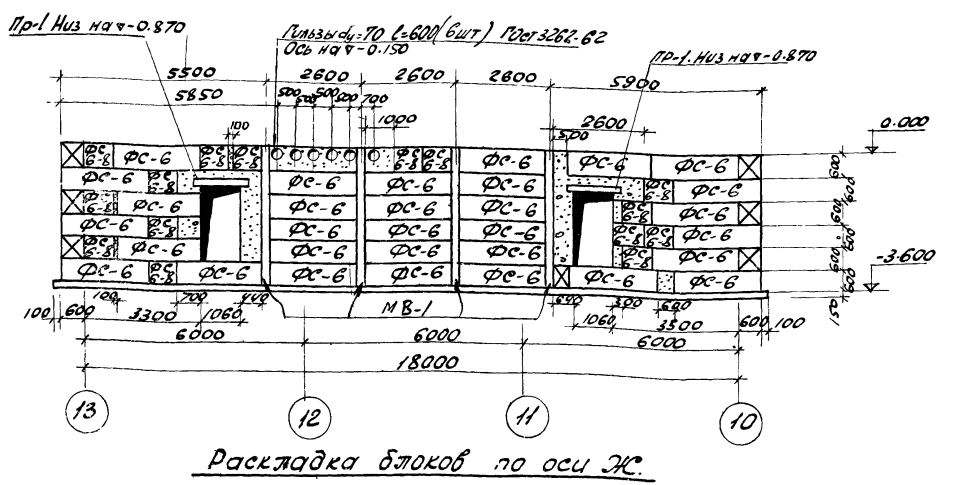 Пр-1 Низ на ▽-0.870
Гильзы dу=70 ℓ=600 (6шт) ГОСТ 3262-62
Ось на ▽-0.150
ПР-1. Низ на ▽-0.870
5500 2600 2600 2600 5900
5850 500 500 500 500 700
100 1000 2600 500
0.000
ФС 6-8 ФС-6 ФС 6-8 ФС 6-8 ФС 6-8 ФС 6-8 ФС-6 ФС-6 ФС-6
ФС-6 ФС 6-8 ФС-6 ФС-6 ФС-6 ФС 6-8 ФС-6
ФС 6-8 ФС-6 ФС-6 ФС-6 ФС-6 ФС 6-8 ФС-6
ФС-6 ФС 6-8 ФС-6 ФС-6 ФС-6 ФС 6-8 ФС 6-8 ФС-6
ФС 6-8 ФС-6 ФС-6 ФС-6 ФС-6 ФС 6-8 ФС-6
ФС-6 ФС 6-8 ФС-6 ФС-6 ФС-6 ФС-6 ФС-6 ФС-6
600 600 600 600 600 600 150
-3.600
100 700 440 МВ-1 640 300 600
100 600 3300 1060 1060 3500 600 100
6000 6000 6000
18000
13 12 11 10
Раскладка блоков по оси Ж.